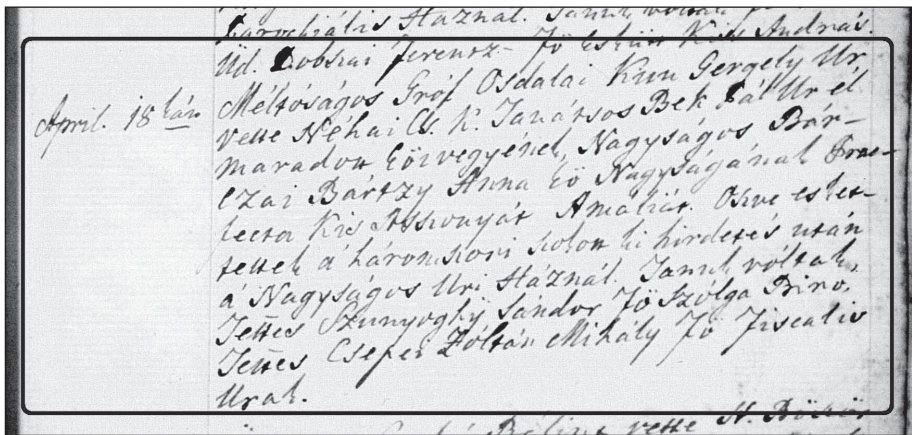 Parochiális Háznál. Tanuk vóltak
Üd. Dobszai Ferentz – Fő Eskütt Kiss András.
April. 18kán Méltóságos Gróf Osdolai Kun Gergely Ur
vette Néhai Cs. K. Tanátsos Bek Pál Ur él
maradott Eözvegyének Nagyságos Bár–
czai Bártzy Anna Eö Nagyságának
lecta Kis Asszonyát Amaliát. Öszve eskettettek
tettek a' háromszori szokott ki hirdetés után
a' Nagyságos Uri Háznál. Tanuk vóltak,
Tettes Szunyoghÿ Sándor Fö Szólga Biro.
Tettes Csepei Zóltán Mihály Fö Fiscalis
Urak.
Bálint vette N.